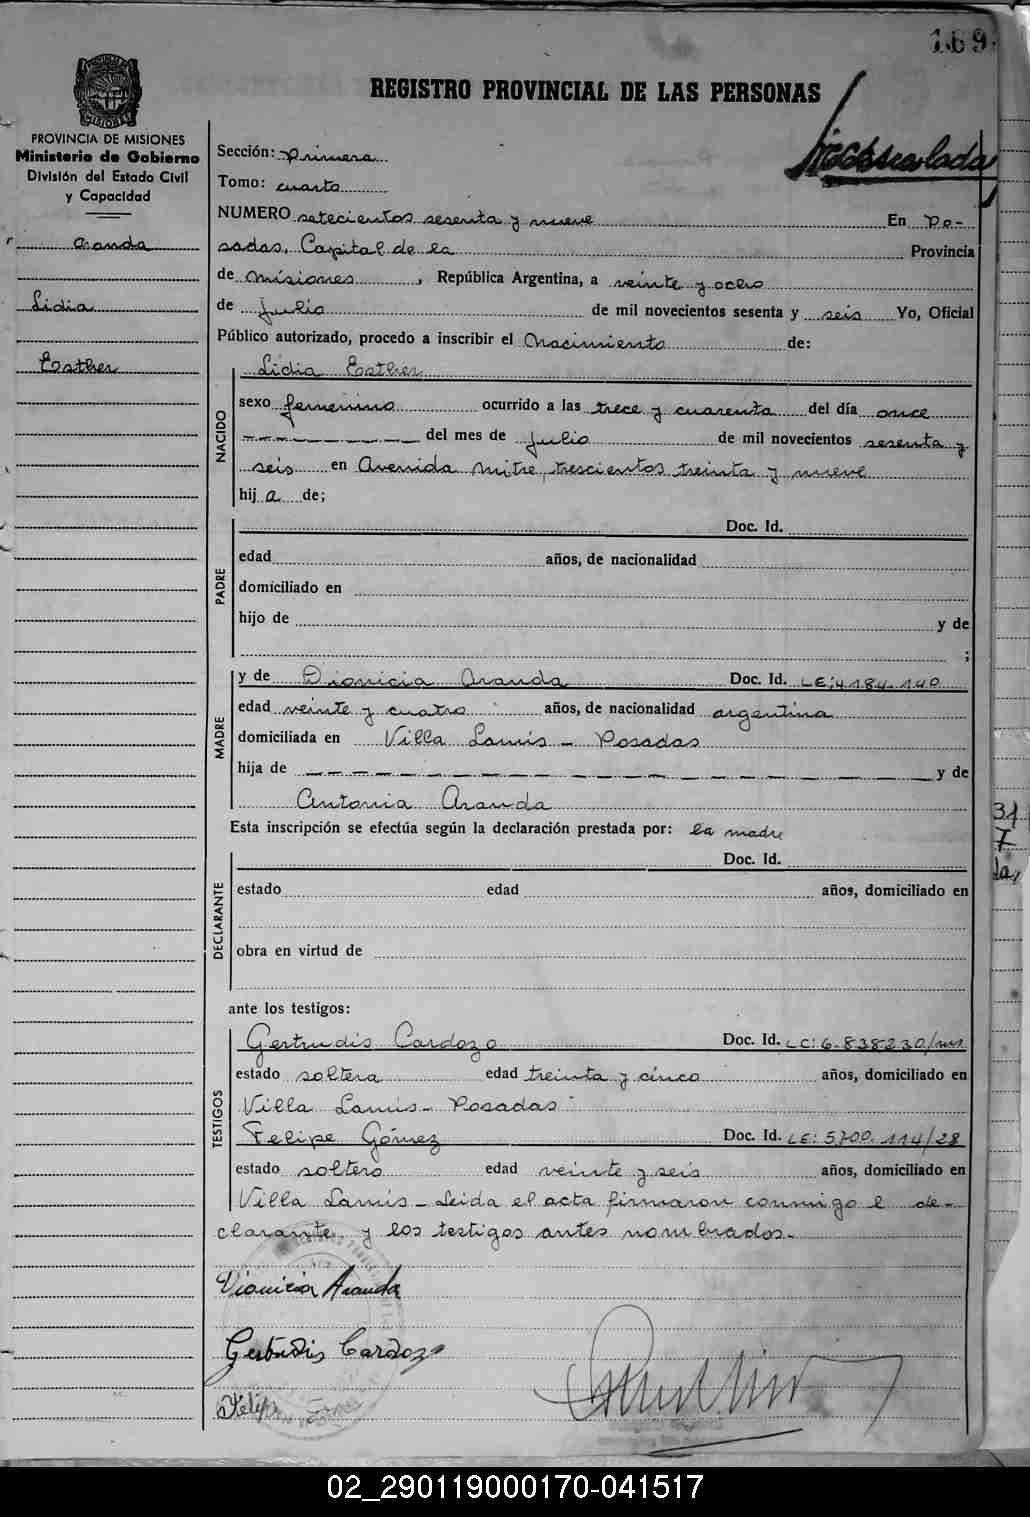 169
REGISTRO PROVINCIAL DE LAS PERSONAS
PROVINCIA DE MISIONES
Ministerio de Gobierno
División del Estado Civil
y Capacidad
Aranda
Lidia
Esther
Sección: Primera
Tomo: cuarto
NUMERO setecientos sesenta y nueve En Po-
sadas, Capital de la Provincia
de Misiones, República Argentina, a veinte y ocho
de Julio de mil novecientos sesenta y seis Yo, Oficial
Público autorizado, procedo a inscribir el Nacimiento de:
NACIDO
Lidia Esther
sexo femenino ocurrido a las trece y cuarenta del día once
del mes de Julio de mil novecientos sesenta y
seis en Avenida Mitre, trescientos treinta y nueve
hija de;
PADRE
Doc. Id.
edad años, de nacionalidad
domiciliado en
hijo de y de
;
MADRE
y de Dionicia Aranda Doc. Id. LE: 4184.140
edad veinte y cuatro años, de nacionalidad argentina
domiciliada en Villa Lanús - Posadas
hija de y de
Antonia Aranda
Esta inscripción se efectúa según la declaración prestada por: la madre
DECLARANTE
Doc. Id.
estado edad años, domiciliado en
obra en virtud de
ante los testigos:
TESTIGOS
Gertrudis Cardozo Doc. Id. LC: 6.838230/
estado soltera edad treinta y cinco años, domiciliado en
Villa Lanús - Posadas
Felipe Gómez Doc. Id. LE: 5700.114/28
estado soltero edad veinte y seis años, domiciliado en
Villa Lanús - Leida el acta firmaron conmigo l de-
clarante, y los testigos antes nombrados.-
Dionicia Aranda
Gertrudis Cardozo
Felipe
31
7
02_290119000170-041517